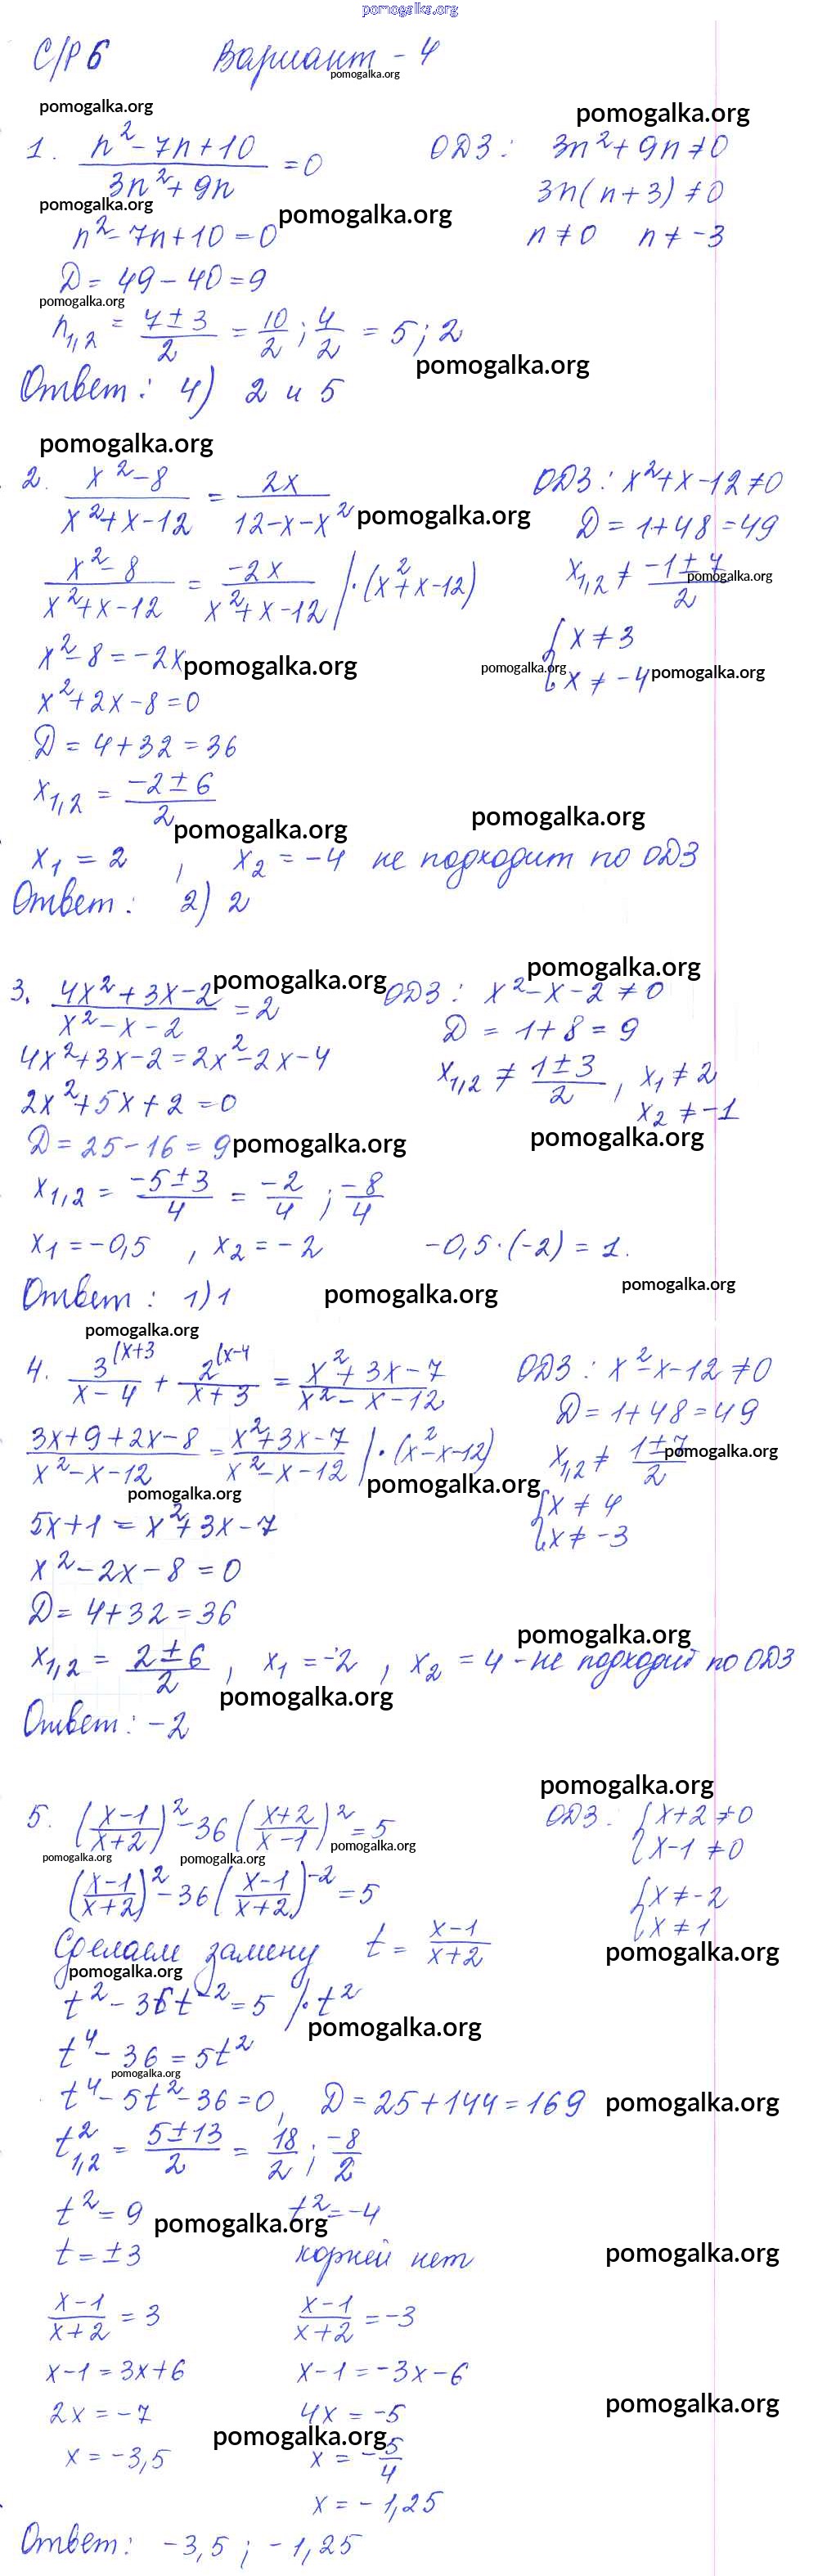 pomogalka.org
С/Р 6 Вариант - 4
pomogalka.org
pomogalka.org pomogalka.org
1. (n² - 7n + 10)/(3n² + 9n) = 0 ОДЗ: 3n² + 9n ≠ 0
3n(n + 3) ≠ 0
pomogalka.org pomogalka.org
n² - 7n + 10 = 0 n ≠ 0 n ≠ -3
D = 49 - 40 = 9
pomogalka.org
n₁,₂ = (7 ± 3)/2 = 10/2 ; 4/2 = 5 ; 2
pomogalka.org
Ответ: 4) 2 и 5
pomogalka.org
2. (x² - 8)/(x² + x - 12) = 2x/(12 - x - x²) ОДЗ: x² + x - 12 ≠ 0
pomogalka.org D = 1 + 48 = 49
(x² - 8)/(x² + x - 12) = -2x/(x² + x - 12) | · (x² + x - 12) x₁,₂ ≠ (-1 ± 7)/2
pomogalka.org
x² - 8 = -2x { x ≠ 3
pomogalka.org pomogalka.org pomogalka.org
x² + 2x - 8 = 0 { x ≠ -4
D = 4 + 32 = 36
x₁,₂ = (-2 ± 6)/2
pomogalka.org pomogalka.org
x₁ = 2 , x₂ = -4 не подходит по ОДЗ
Ответ: 2) 2
pomogalka.org pomogalka.org
3. (4x² + 3x - 2)/(x² - x - 2) = 2 ОДЗ: x² - x - 2 ≠ 0
D = 1 + 8 = 9
4x² + 3x - 2 = 2x² - 2x - 4 x₁,₂ ≠ (1 ± 3)/2 , x₁ ≠ 2
2x² + 5x + 2 = 0 x₂ ≠ -1
D = 25 - 16 = 9 pomogalka.org pomogalka.org
x₁,₂ = (-5 ± 3)/4 = -2/4 ; -8/4
x₁ = -0,5 , x₂ = -2 -0,5 · (-2) = 1.
Ответ: 1) 1 pomogalka.org pomogalka.org
pomogalka.org
4. 3^(x+3/(x - 4) + 2^(x-4/(x + 3) = (x² + 3x - 7)/(x² - x - 12) ОДЗ: x² - x - 12 ≠ 0
D = 1 + 48 = 49
(3x + 9 + 2x - 8)/(x² - x - 12) = (x² + 3x - 7)/(x² - x - 12) | · (x² - x - 12) x₁,₂ ≠ (1 ± 7)/2 pomogalka.org
pomogalka.org pomogalka.org
5x + 1 = x² + 3x - 7 { x ≠ 4
{ x ≠ -3
x² - 2x - 8 = 0
D = 4 + 32 = 36
pomogalka.org
x₁,₂ = (2 ± 6)/2 , x₁ = -2 , x₂ = 4 - не подходит по ОДЗ
pomogalka.org
Ответ: -2
pomogalka.org
5. ((x-1)/(x+2))² - 36((x+2)/(x-1))² = 5 ОДЗ. { x + 2 ≠ 0
{ x - 1 ≠ 0
pomogalka.org pomogalka.org pomogalka.org
((x-1)/(x+2))² - 36((x-1)/(x+2))⁻² = 5 { x ≠ -2
{ x ≠ 1
Сделаем замену t = (x-1)/(x+2) pomogalka.org
pomogalka.org
t² - 36t⁻² = 5 | · t²
pomogalka.org
t⁴ - 36 = 5t²
pomogalka.org
t⁴ - 5t² - 36 = 0, D = 25 + 144 = 169 pomogalka.org
t²₁,₂ = (5 ± 13)/2 = 18/2 ; -8/2
t² = 9 t² = -4
pomogalka.org
t = ±3 корней нет pomogalka.org
(x-1)/(x+2) = 3 (x-1)/(x+2) = -3
x - 1 = 3x + 6 x - 1 = -3x - 6
2x = -7 4x = -5 pomogalka.org
pomogalka.org
x = -3,5 x = -5/4
x = -1,25
Ответ: -3,5 ; -1,25